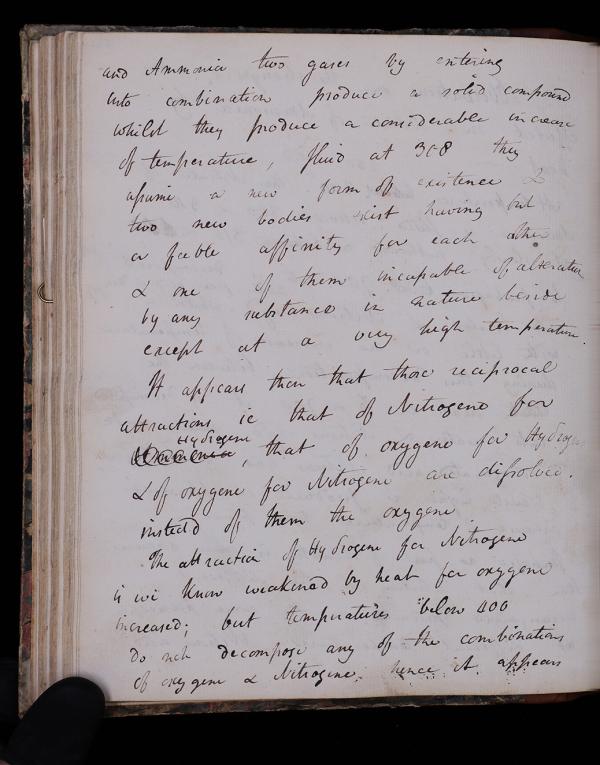 and Ammonia two gases by entering
into combination produce a solid compound
whilst they produce a considerable increase
of temperature, fluid at 308 they
assume a new form of existence &
two new bodies exist having but
a feeble affinity for each other
& one of them incapable of alteration
by any substance in nature beside
except at a very high temperature.
It appears then that those reciprocal
attractions ie that of Nitrogene for
Hydrogene
Ammonia, that of oxygene for Hydrogene
& of oxygene for Nitrogene are dissolved.
instead of them the oxygene
The attraction of Hydrogene for Nitrogene
is we know weakened by heat for oxygene
increased; but temperatures below 400
do not decompose any of the combinations
of oxygene & Nitrogene. hence it appears